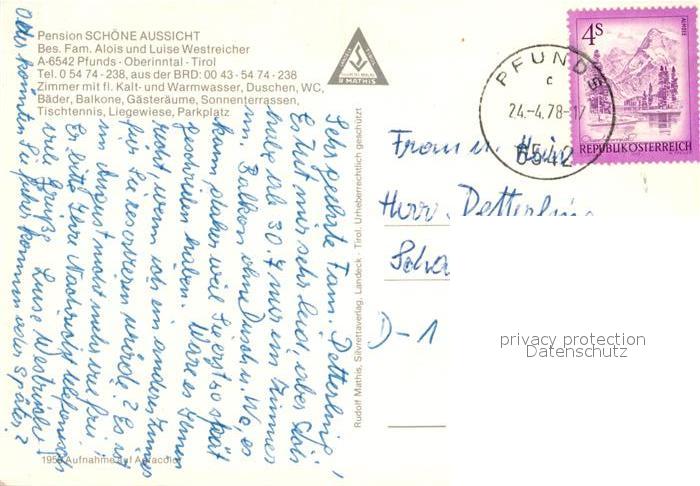 Pension SCHÖNE AUSSICHT
Bes. Fam. Alois und Luise Westreicher
A-6542 Pfunds · Oberinntal - Tirol
Tel. 0 54 74 - 238, aus der BRD: 00 43 - 54 74 - 238
Zimmer mit fl. Kalt- und Warmwasser, Duschen, WC,
Bäder, Balkone, Gästeräume, Sonnenterrassen,
Tischtennis, Liegewiese, Parkplatz
R MATHIS
PFUNDS
c
24.-4.78-17
6542
4S
ALMSEE
REPUBLIK ÖSTERREICH
Frau u.
Herr. Detterling
Scha
D-1
Sehr geehrte Fam. Detterling!
Es tut mir sehr leid, aber
habe ab 30.7 nur ein Zimmer
m. Balkon ohne Dusch u. Wc es
kam daher weil Sie erst so spät
geschrieben haben. Wäre es Ihnen
recht wenn ich ein anderes Zimmer
für Sie reservieren würde? Es ist
im August nicht mehr frei!
Er bitte Ihre Nachricht telefonisch
viele Grüße Luise Westreicher
Oder könnten Sie früher kommen oder später?
Rudolf Mathis, Silvrettaverlag, Landeck - Tirol. Urheberrechtlich geschützt
Aufnahme auf Agfacolor
privacy protection
Datenschutz